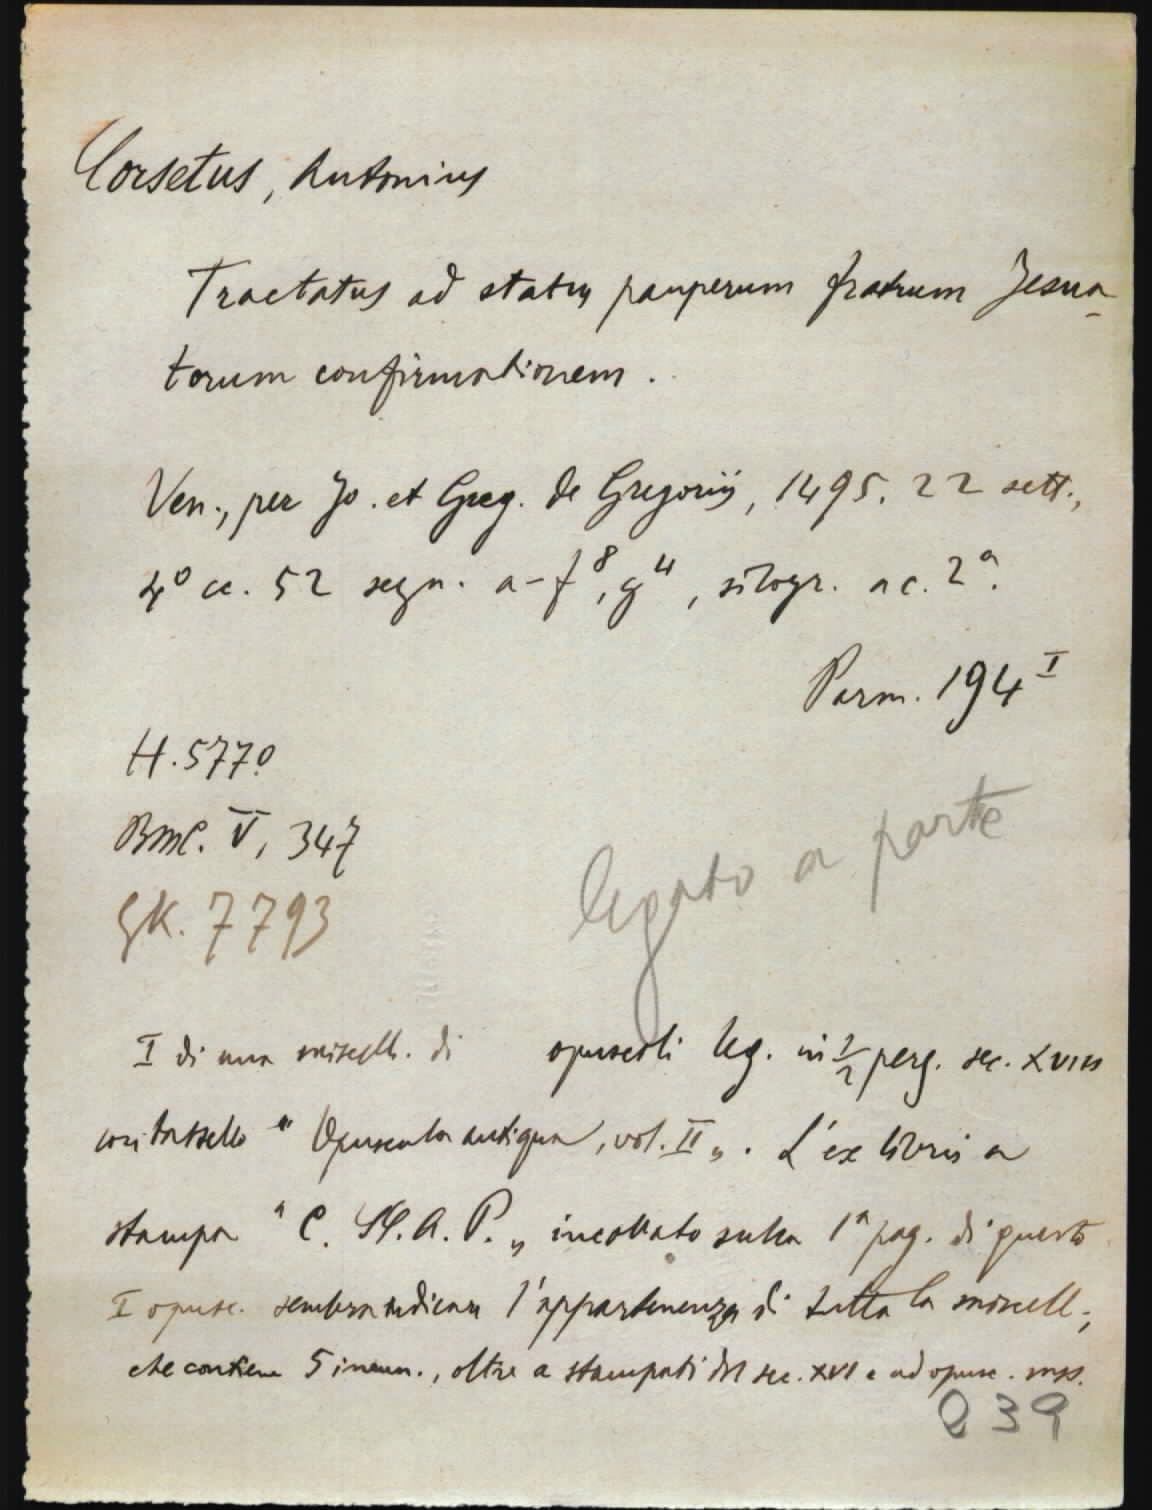 Corsetus, Antonius
Tractatus ad status pauperum fratrum Jesua-
torum confirmationem.
Ven., per Jo. et Greg. de Gregoriis, 1495. 22 sett.,
4° cc. 52 segn. a-f⁸, g⁴, silogr. a c. 2ª.
Parm. 194 I
H. 5770
BMC. V, 347
GK. 7793
legato a parte
I di una miscell. di opuscoli leg. in 1/2 perg. sec. XVIII
con tassello "Opuscula antiqua, vol. II„. L'ex libris a
stampa " C. A. P. „ incollato sulla 1ª pag. di questo
I opusc. sembra indicare l'appartenenza di tutta la miscell.,
che contiene 5 incun., oltre a stampati del sec. XVI e ad opusc. mss.
239